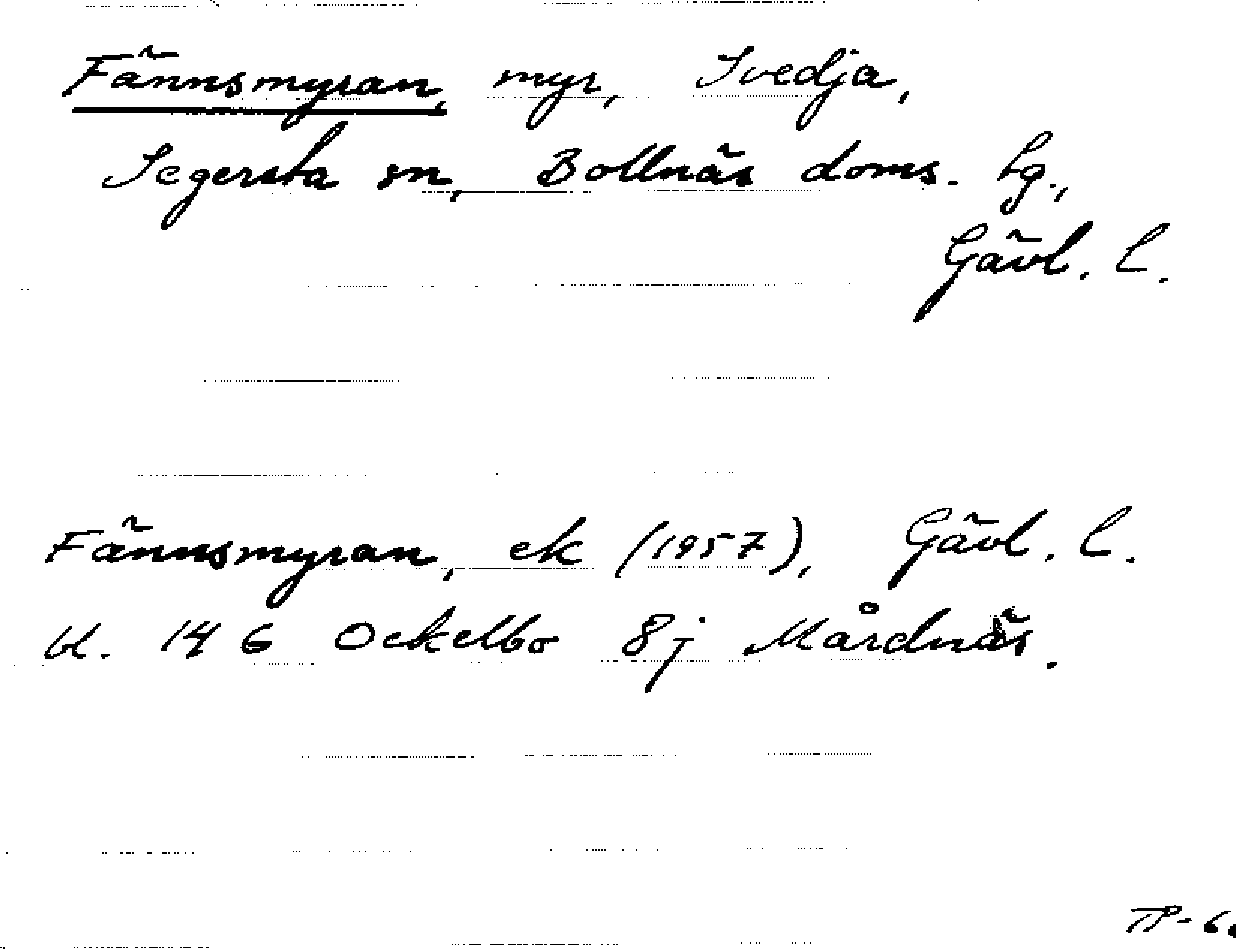 Fännsmyran, myr, Svedja,
Segersta sn, Bollnäs doms. hg.,
Gävl. l.
Fännsmyran, ek (1957), Gävl. l.
bl. 146 Ockelbo 8j Mårdnäs.
TP-6